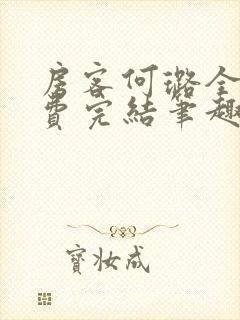 房客何璐全
費完結筆趣
寶妝成